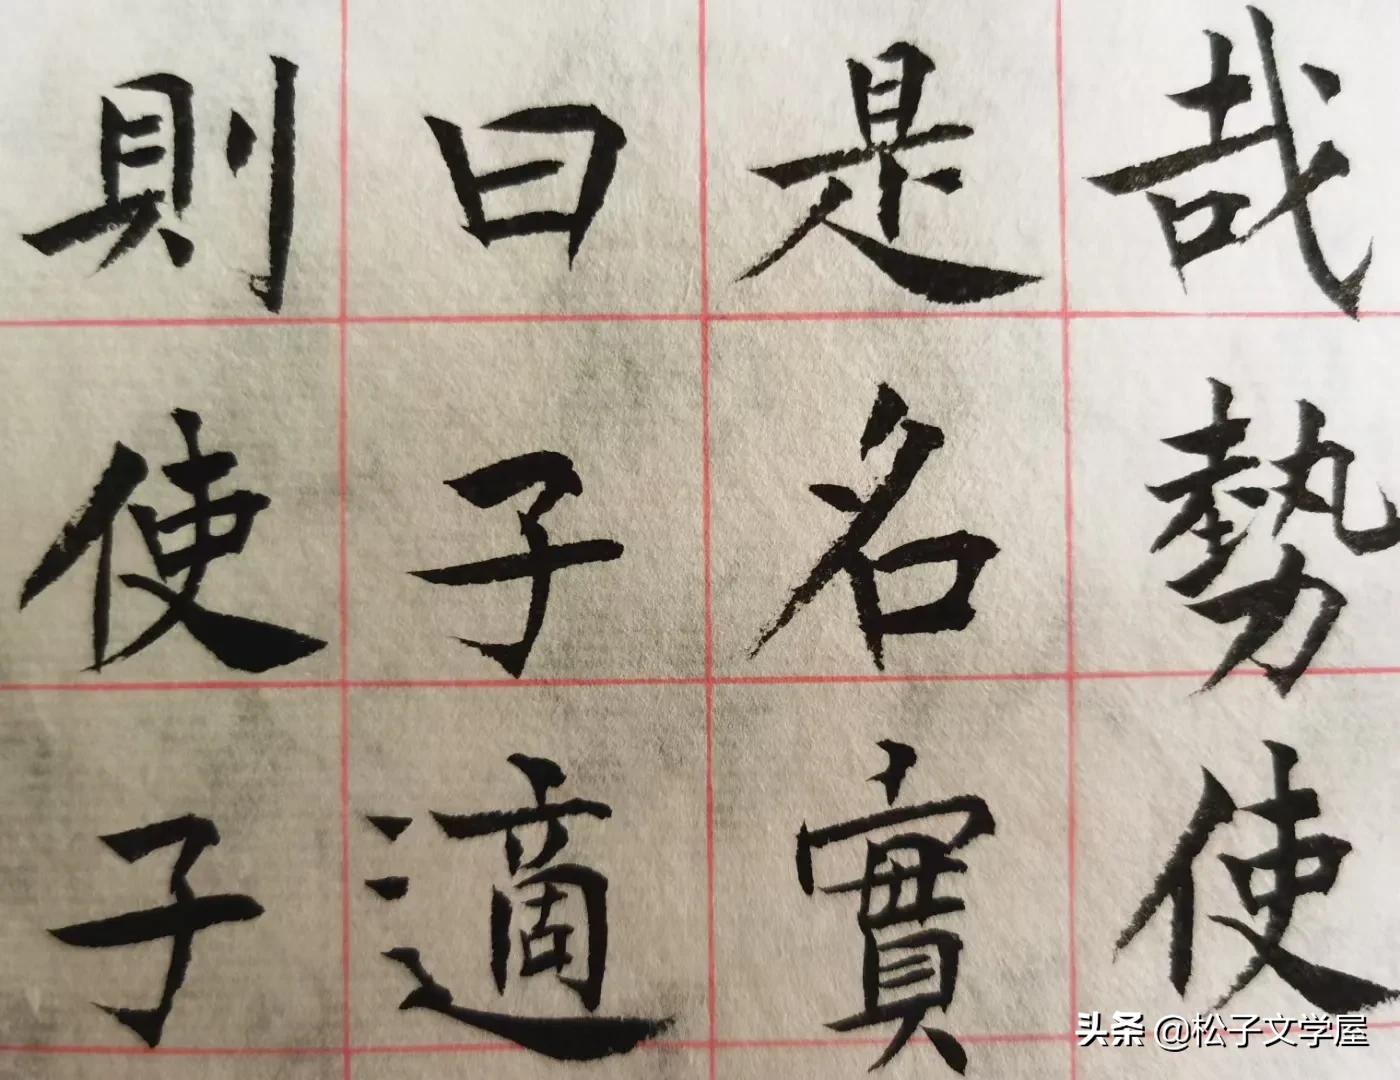 哉勢使
是名實
曰子適
則使子
头条 @松子文学屋